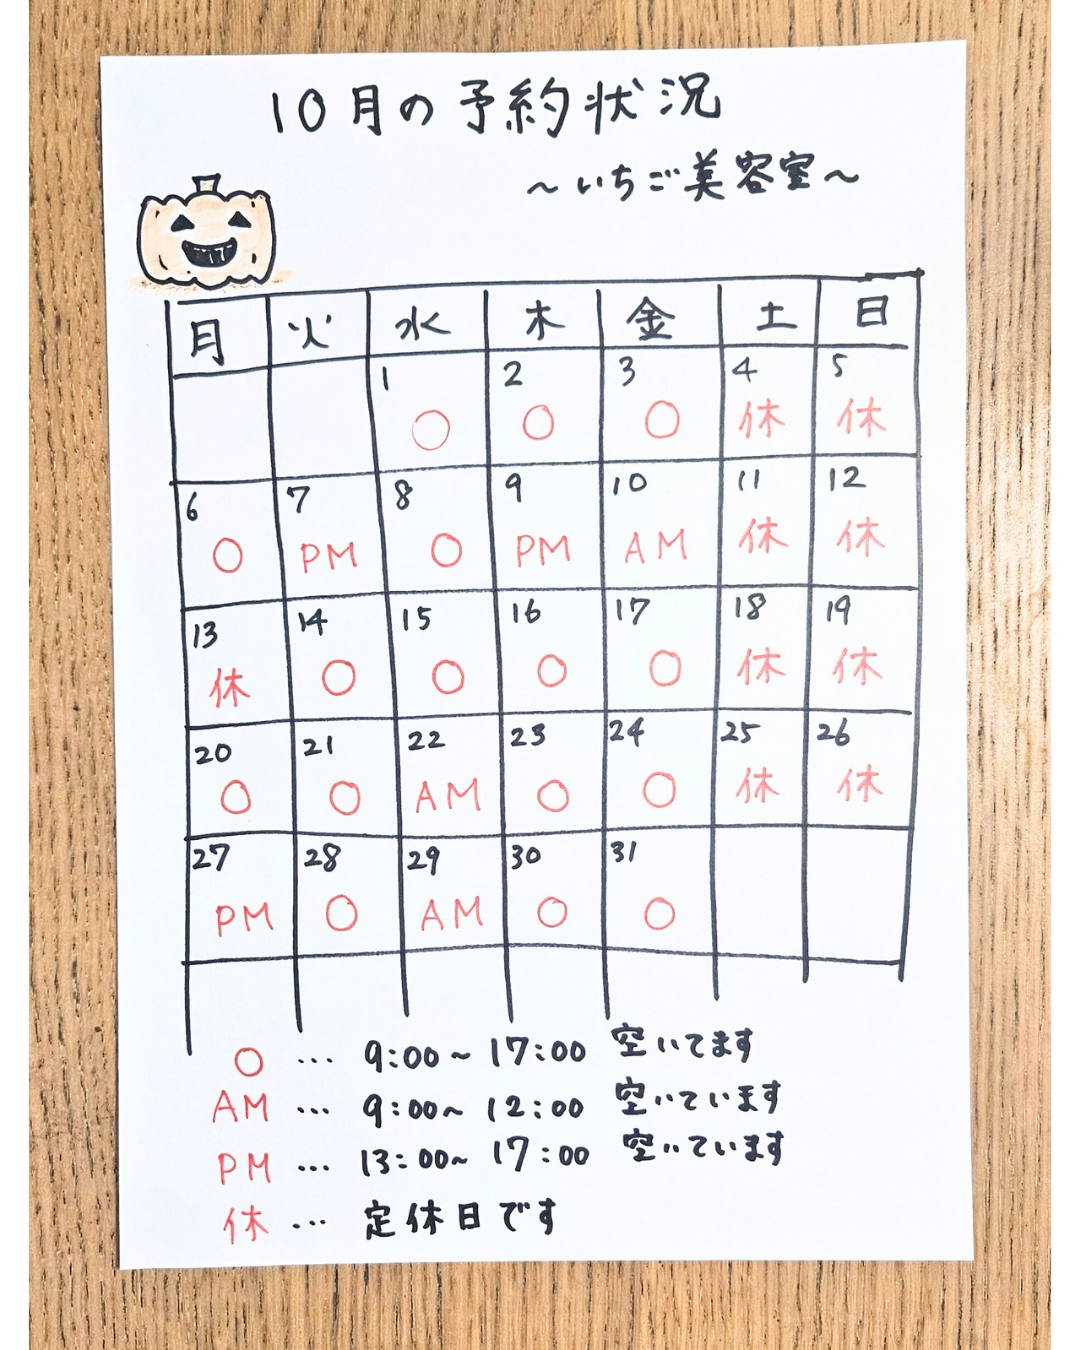 10月の予約状況
～いちご美容室～
月 火 水 木 金 土 日
1 2 3 4 5
○ ○ ○ 休 休
6 7 8 9 10 11 12
○ PM ○ PM AM 休 休
13 14 15 16 17 18 19
休 ○ ○ ○ ○ 休 休
20 21 22 23 24 25 26
○ ○ AM ○ ○ 休 休
27 28 29 30 31
PM ○ AM ○ ○
○ … 9:00～17:00 空いてます
AM … 9:00～12:00 空いています
PM … 13:00～17:00 空いています
休 … 定休日です